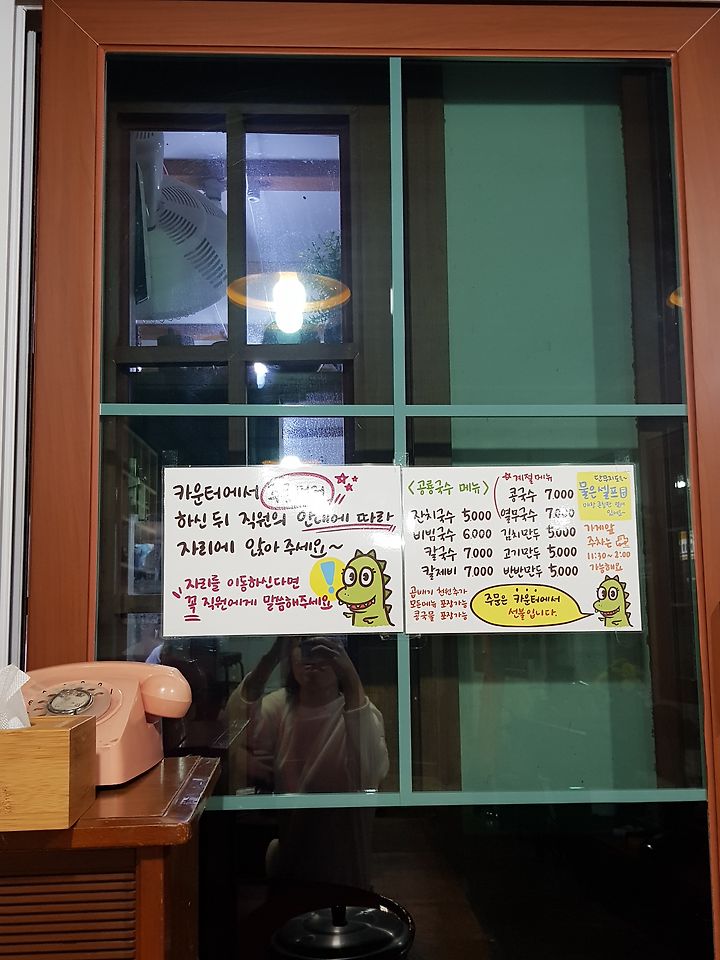 카운터에서
하신 뒤 직원의 안내에 따라
자리에 앉아 주세요~
자리를 이동하신다면
꼭 직원에게 말씀해주세요
!
<공룡국수 메뉴>
잔치국수 5,000
비빔국수 6,000
칼국수 7,000
칼제비 7,000
곱빼기 천원추가
모든메뉴 포장가능
콩국물 포장가능
계절메뉴
콩국수 7,000
열무국수 7,000
김치만두 5,000
고기만두 5,000
반반만두 5,000
주문은 카운터에서
선불입니다.
물은셀프
가게앞
주차는
11:30~2:00
가능해요